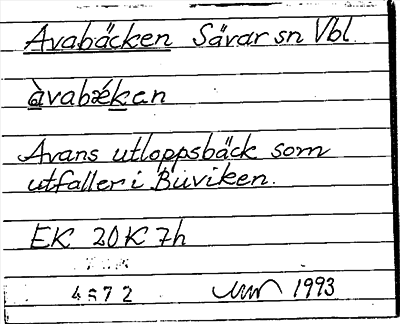 Avabäcken Sävar sn Vbl.
àvabǽkan
Avans utloppsbäck som
utfaller i Buviken.
EK 20K 7h
4672
1993